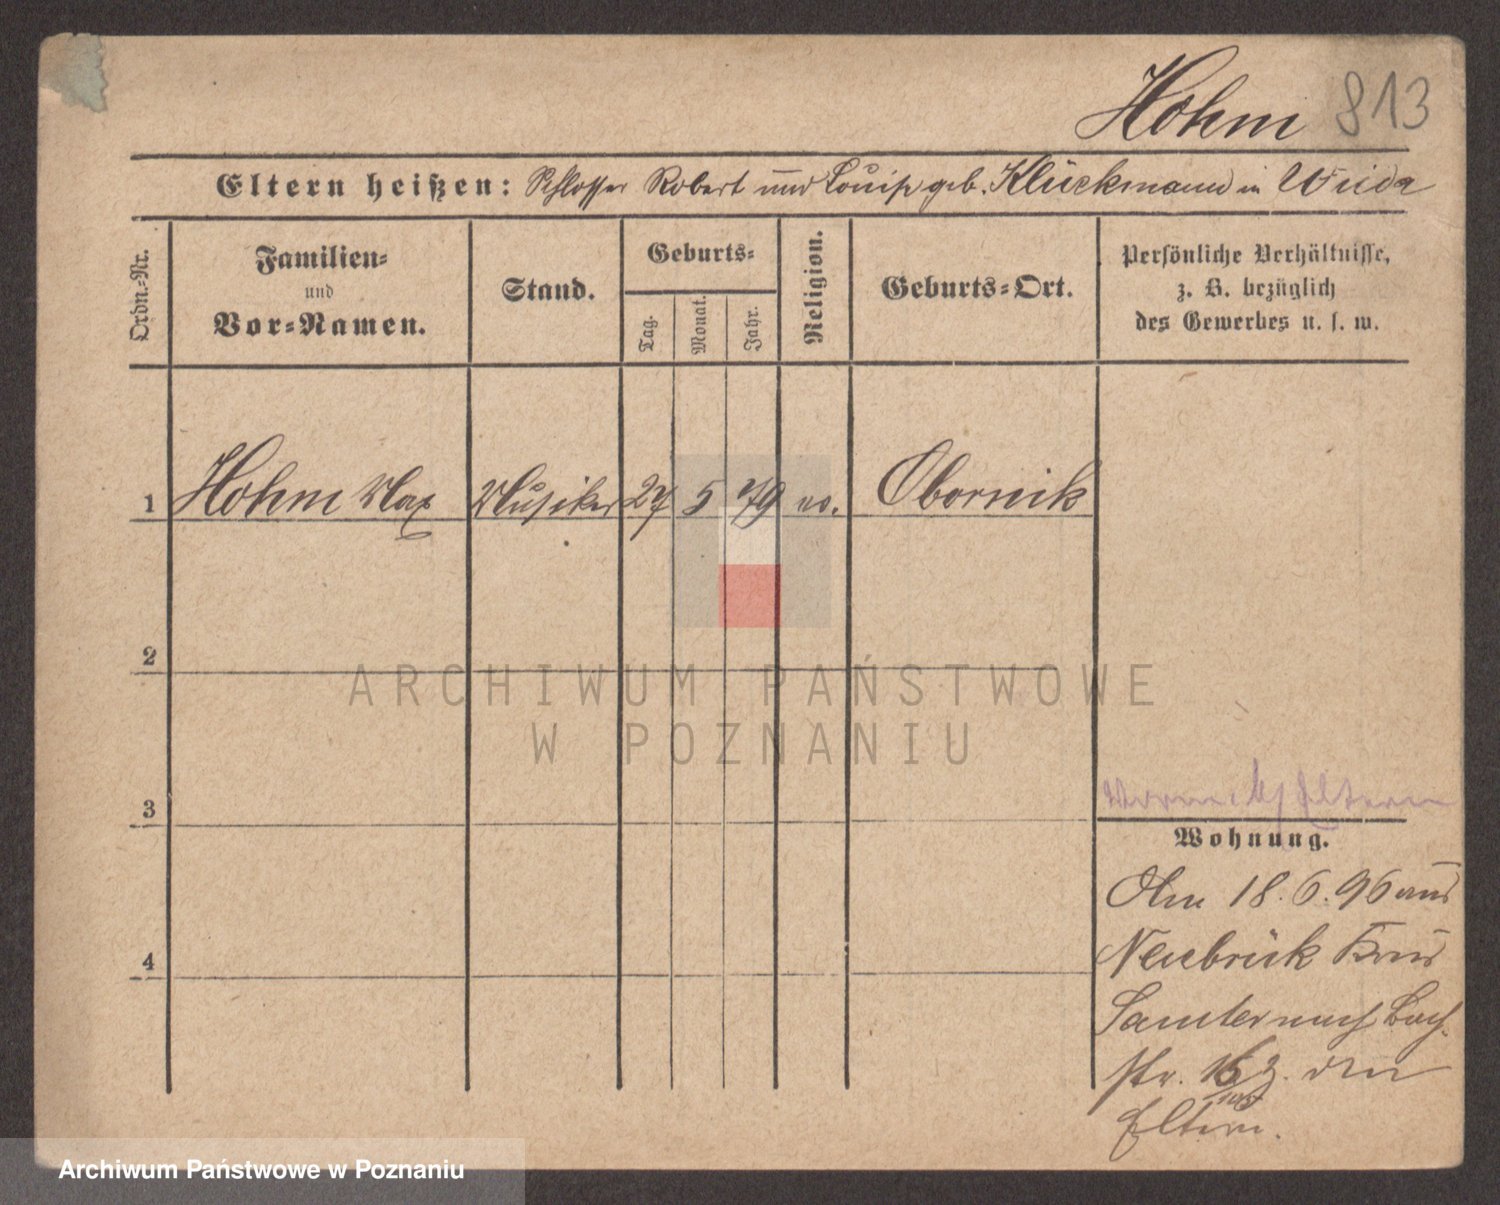 Hohm 813
Eltern heißen: Schlosser Robert und Louise geb. Klückmann in Wilda
Ordn.-Nr.
Familien-
und
Vor-Namen.
Stand.
Geburts-
Tag.
Monat.
Jahr.
Religion.
Geburts-Ort.
Persönliche Verhältnisse,
z. B. bezüglich
des Gewerbes u. s. w.
1 Hohm Max Musiker 27 5 79 ev. Obornik
2
3
4
ARCHIWUM PAŃSTWOWE
W POZNANIU
Eltern
Wohnung.
Am 18.6.96 aus
Neubrück Kreis
Samter nach Bach
str. 2. den
Eltern.
Archiwum Państwowe w Poznaniu